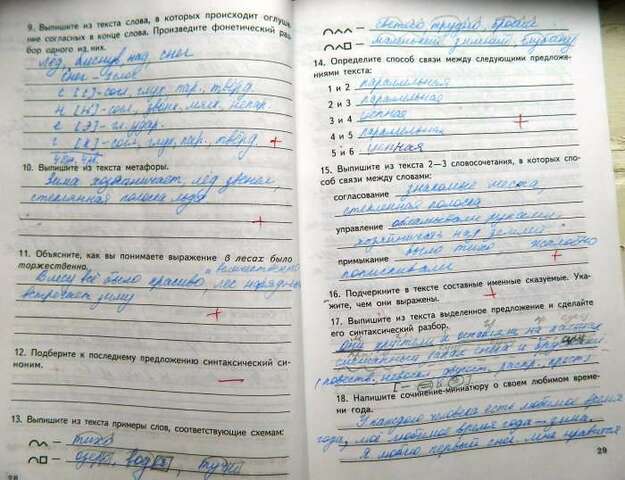 9. Выпишите из текста слова, в которых происходит оглуше-
ние согласных в конце слова. Произведите фонетический раз-
бор одного из них.
Лёд, над, снег
Снег –
с [с] - согл., глух., пар., тверд.
н [н'] - согл., звонк., мягк., непар.
е [э] - гл., удар.
г [к] - согл., глух., пар., тверд. +
4 б., 4 зв.
10. Выпишите из текста метафоры.
Зима хозяйничает, лёд звенел,
стеклянная полоска льда
+
11. Объясните, как вы понимаете выражение в лесах было
торжественно.
величественно
В лесу всё было красиво, лес наряд
встречает зиму
+
12. Подберите к последнему предложению синтаксический си-
ноним.
13. Выпишите из текста примеры слов, соответствующие схемам:
– тихо
– озера, вода, тучи
28
– маленький,
14. Определите способ связи между следующими предложе-
ниями текста:
1 и 2 параллельная
2 и 3 параллельная
3 и 4 цепная +
4 и 5 параллельная
5 и 6 цепная
15. Выпишите из текста 2—3 словосочетания, в которых спо-
соб связи между словами:
согласование знакомые места,
стеклянная полоска
управление
хозяйничает над землей
примыкание было тихо жалобно
попискивали +
16. Подчеркните в тексте составные именные сказуемые. Ука-
жите, чем они выражены. +
17. Выпишите из текста выделенное предложение и сделайте
его синтаксический разбор.
Они хрустели и оставляли на пальцах
смешанный запах снега и
18. Напишите сочинение-миниатюру о своем любимом време-
ни года.
У каждого человека есть любимое время
года, моё любимое время года – зима.
Я люблю первый снег. Мне нравится
29